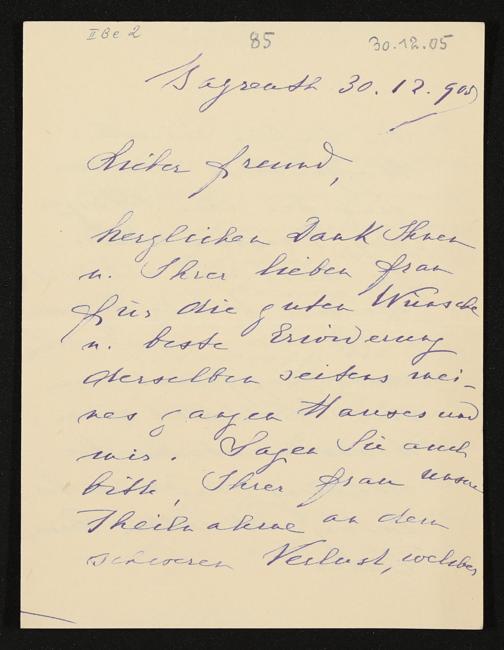 II Be 2
85
30.12.05
Bayreuth 30.12.905
Lieber Freund,
herzlichen Dank Ihnen
u. Ihrer lieben Frau
für die guten Wünsche
u. beste Erwiderung
derselben seitens mei-
nes ganzen Hauses und
mir. Sagen Sie auch
bitte, Ihrer Frau unsere
Theilnahme an dem
schweren Verlust, welchen